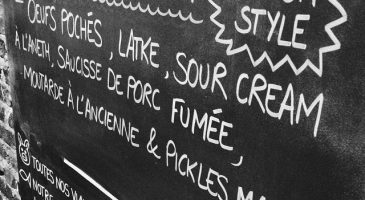 STYLE
2 OEUFS POCHÉS, LATKE, SOUR CREAM
À L'ANETH, SAUCISSE DE PORC FUMÉE,
MOUTARDE À L'ANCIENNE & PICKLES
TOUTES NOS
NOTRE